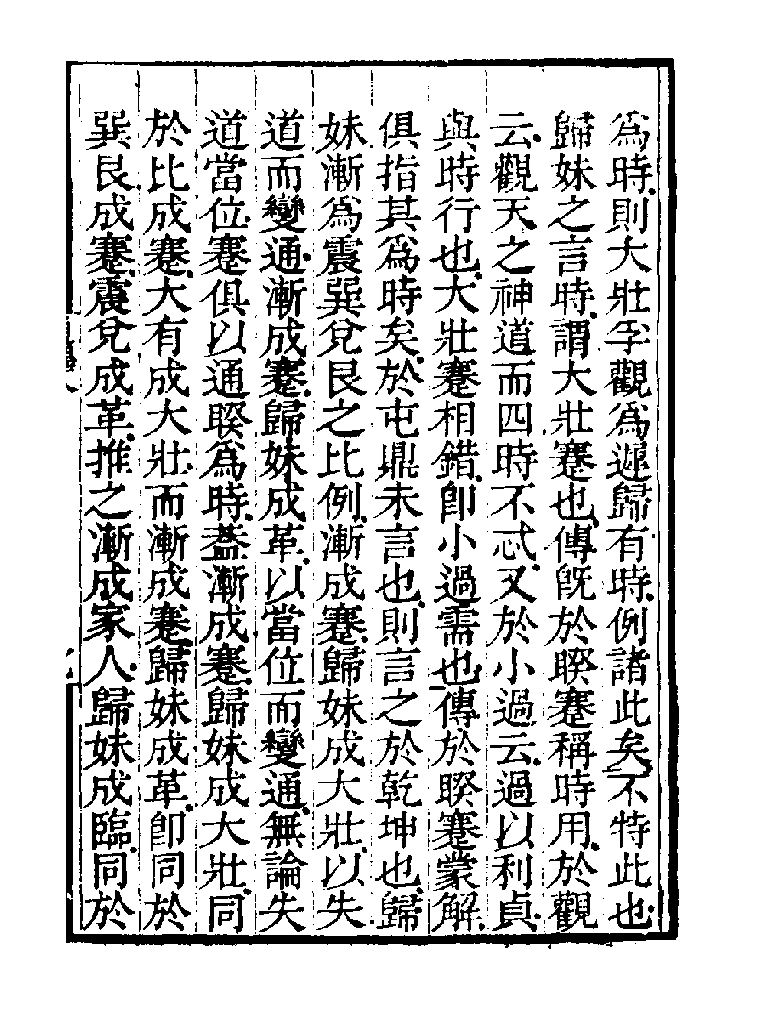 爲時則大壯孚觀爲遲歸有時例諸此矣不特此也
歸妹之言時謂大壯蹇也傳旣於睽蹇稱時用於觀
云觀天之神道而四時不忒又於小過云過以利貞
與時行也大壯蹇相錯卽小過需也傳於睽蹇蒙解
俱指其爲時矣於屯鼎未言也則言之於乾坤也歸
妹漸爲震巽兌艮之比例漸成蹇歸妹成大壯以失
道而變通漸成蹇歸妹成革以當位而變通無論失
道當位蹇俱以通睽爲時葢漸成蹇歸妹成大壯同
於比成蹇大有成大壯而漸成蹇歸妹成革卽同於
巽艮成蹇震兌成革推之漸成家人歸妹成臨同於